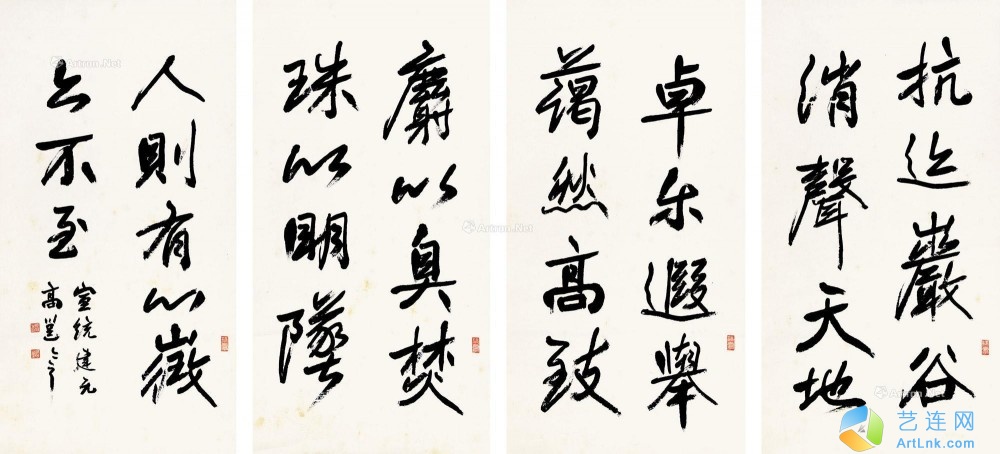 抗迹巖谷
消聲天地
卓尔遐舉
藹然高致
麝以臭焚
珠以明墜
人則有以徵
之不至
宣統建元
高邕之
Artron.Net
Artron.Net
Artron.Net
艺连网
ArtLnk.com